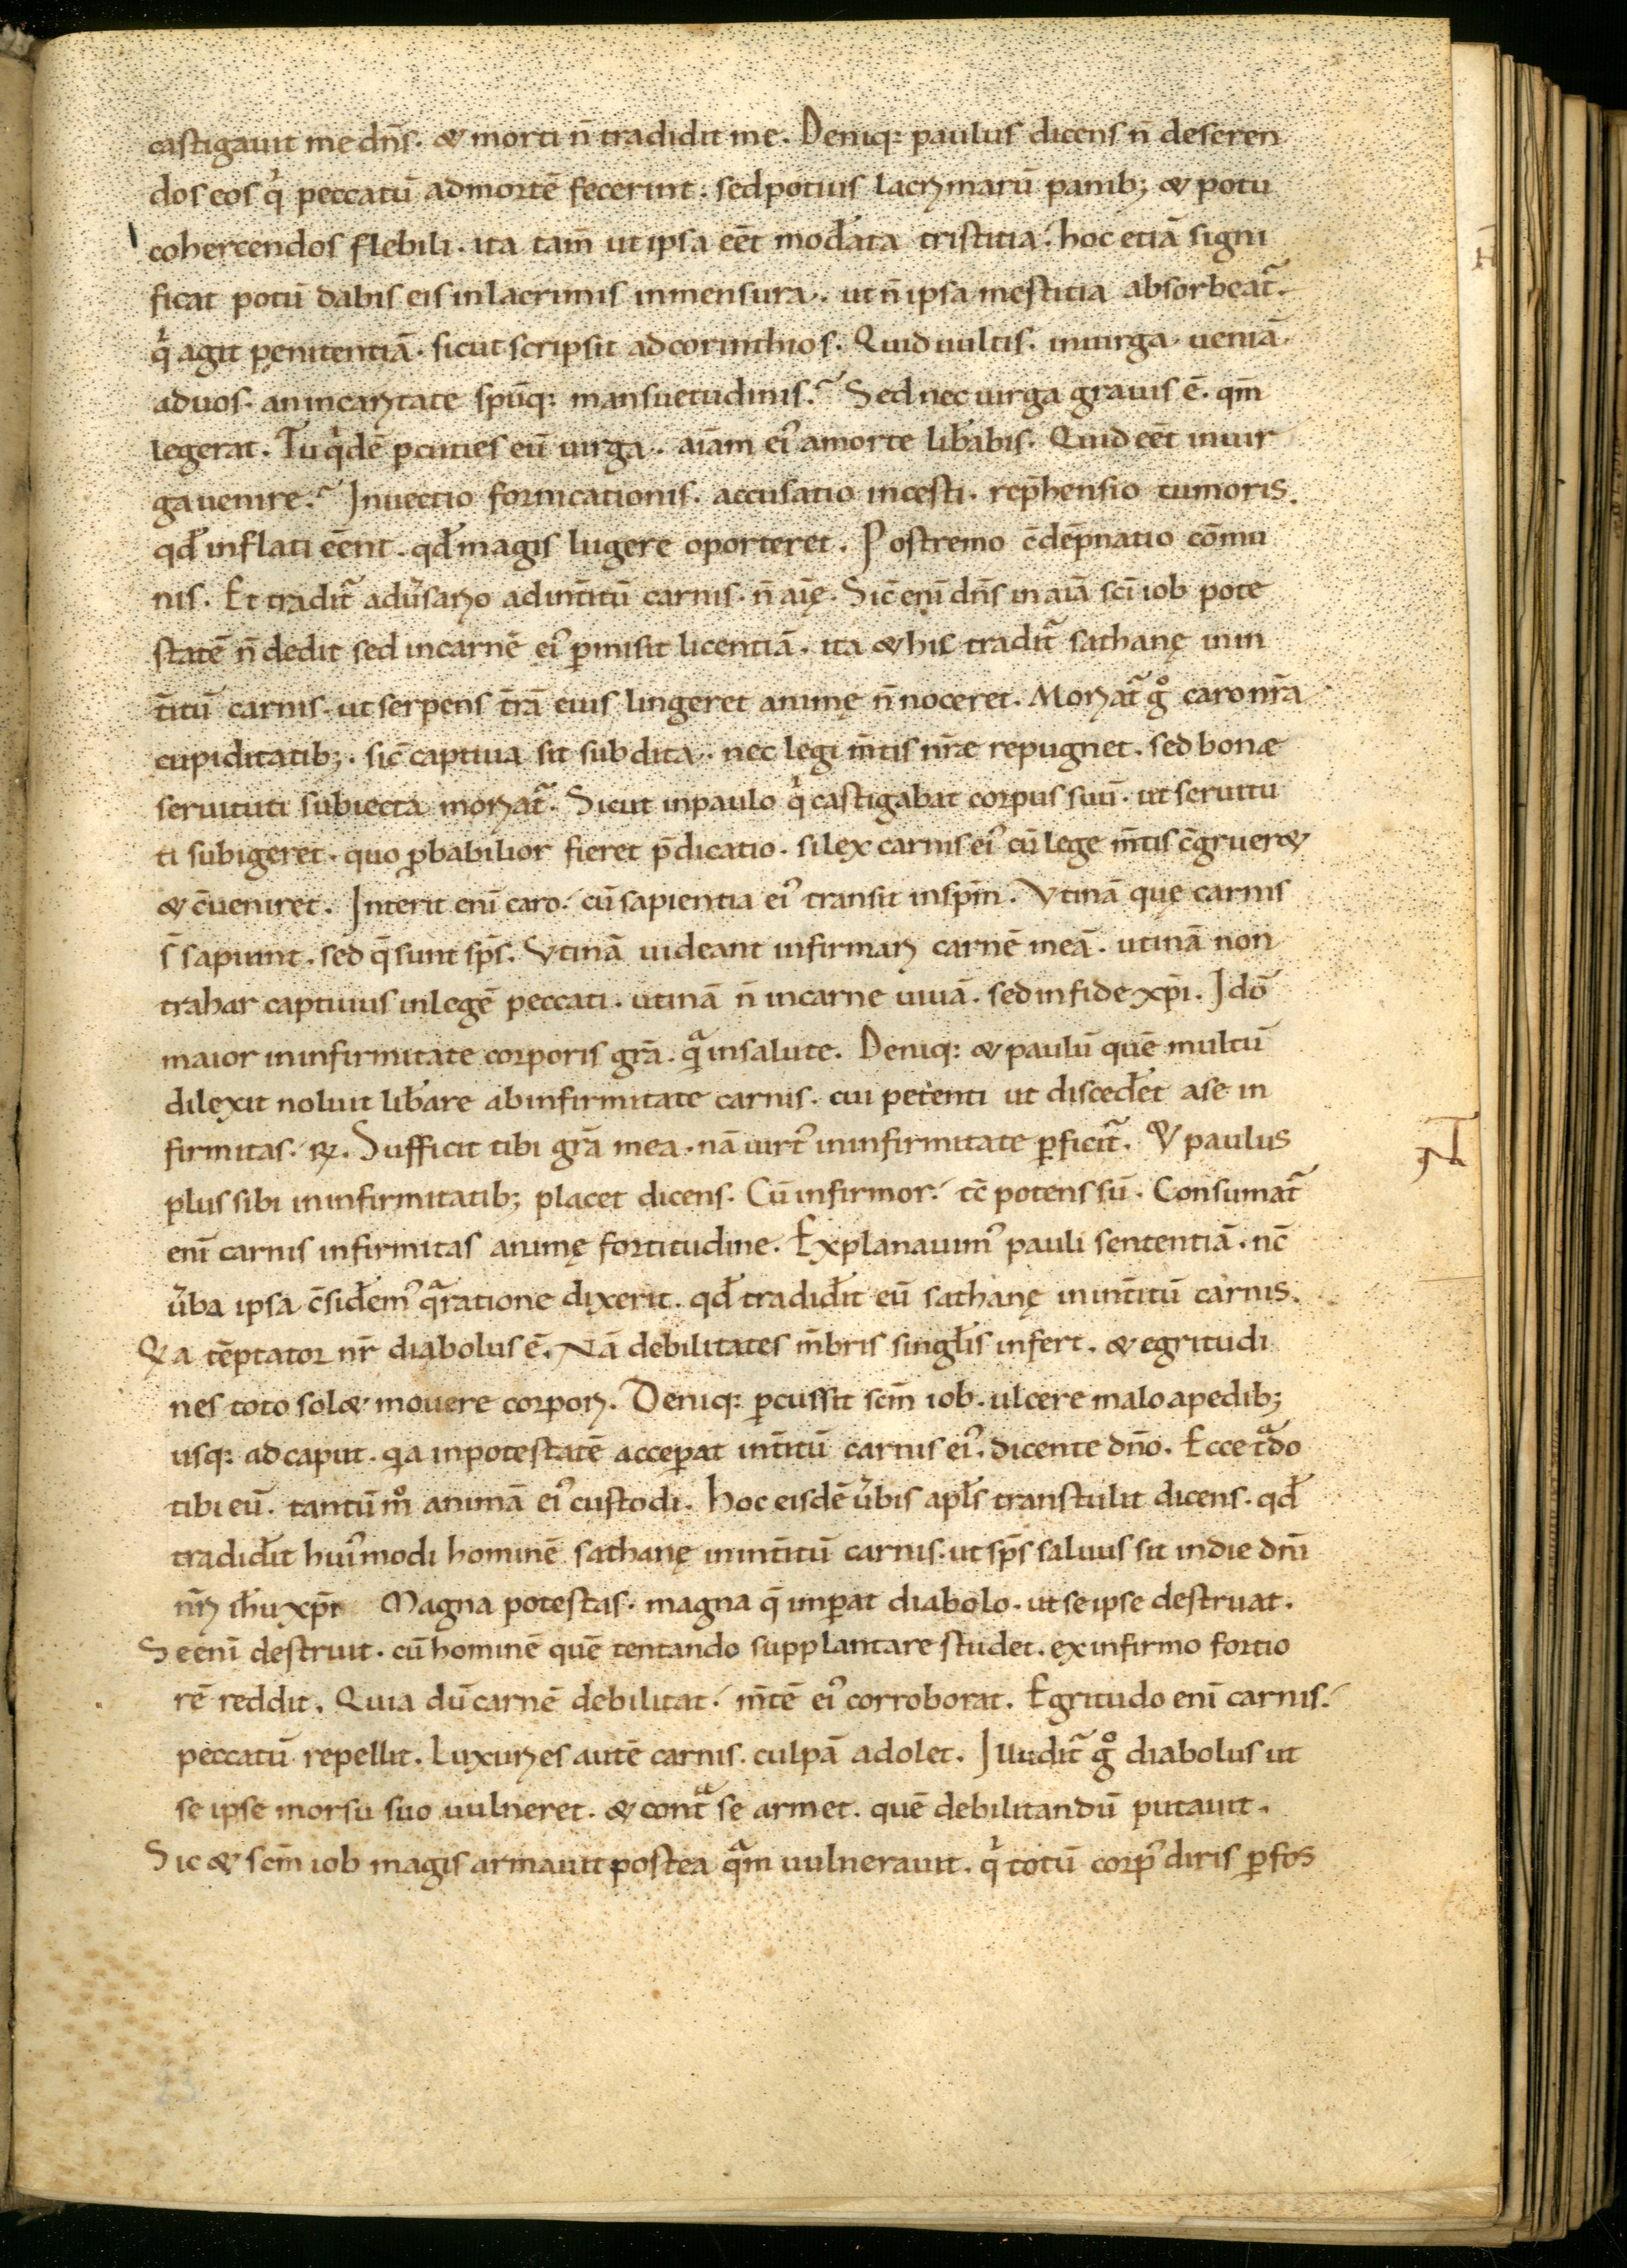 castigauit me dn̄s. & morti n̄ tradidit me. Deniq: paulus dicens n̄ deseren
dos eos qͥ peccatū admortē fecerint. sed potius lacrymarū panib; & potu
cohercendos flebili. ita tam̄ ut ipsa eēt moda̅ta tristitia. hoc etiā signi
ficat potū dabis eis inlacrimis inmensura. ut n̄ ipsa mestitia absorbeat᷑.
qͥ agit penitentiā. sicut scripsit adcorinthios. Quid uultis. inuirga ueniā
aduos. an incaritate spūq: mansuetudinis? Sed nec uirga grauis ē. qm̄
legerat. Tu qͥdē ꝑcuties eū uirga. aīam ei᷒ amorte lib̅abis. Quid eēt inuir
ga uenire? Inuectio fornicationis. accusatio incesti. rep̄hensio tumoris.
qđ inflati eēnt. qđ magis lugere oporteret. Postremo c̄dēpnatio cōmu
nis. Et tradit᷑ adu̓sario adint̄itū carnis. n̄ aīę. Sic̄ enī dn̄s in aīā sc̄i iob pote
statē n̄ dedit sed incarnē ei᷒ ꝑmisit licentiā. ita & hic tradit᷑ sathanę inin
t̄itū carnis. ut serpens t̄rā eius lingeret animę n̄ noceret. Moriat᷑ gͦ caro nr̄a
cupiditatib;. sic̄ captiua sit subdita. nec legi m̄tis nr̄æ repugnet. sed bonæ
seruituti subiecta moriat᷑. Sicut inpaulo qͥ castigabat corpus suū. ut seruitu
ti subigeret. quo ꝓbabilior fieret p̄dicatio. si lex carnis ei᷒ cū lege m̄tis c̄gruer&
& c̄ueniret. Interit enī caro. cū sapientia ei᷒ transit inspm̄. Vtinā quę carnis
s̄ sapiunt. sed q̄ sunt sp̄s. Vtinā uideant infirmari carnē meā. utinā non
trahar captiuus inlegē peccati. utinā n̄ incarne uiuā. sed infide xp̄i. Idō
maior ininfirmitate corporis grā. qͣ insalute. Deniq: & paulū quē multū
dilexit noluit lib̅are abinfirmitate carnis. cui petenti ut disced̅et ase in
firmitas. R̷. Sufficit tibi grā mea. nā uirt᷒ ininfirmitate ꝑficit᷑. & paulus
plus sibi ininfirmitatib; placet dicens. Cū infirmor. tc̄ potens sū. Consumat᷑
enī carnis infirmitas animę fortitudine. Explanauim᷒ pauli sententiā. nc̄
u̓ba ipsa c̄sid̅em᷒ qͣ ratione dixerit. qđ tradid̅it eū sathanę inint̄itū carnis.
Qa tēptator nr̄ diabolus ē. Nā debilitates m̄bris singl̅is infert. & egritudi
nes toto sol& mouere corpori. Deniq: ꝑcussit scm̄ iob. ulcere malo apedib;
usq: ad caput. qa inpotestatē acceꝑat int̄itū carnis ei᷒. dicente dn̄o. Ecce tͣdo
tibi eū. tantūmͦ animā ei᷒ custodi. Hoc eisdē u̓bis apl̅s transtulit dicens. qđ
tradid̅it hui᷒modi hominē sathanę inint̄itū carnis. ut sp̄s saluus sit indie dn̄i
nr̄i ih̅u xp̄i Magna potestas. magna q̄ imꝑat diabolo. ut se ipse destruat.
Se enī destruit. cū hominē quē tentando supplantare studet. ex infirmo fortio
rē reddit. Quia dū carnē debilitat. m̄tē ei᷒ corroborat. Egritudo enī carnis.
peccatū repellit. Luxuries autē carnis. culpā adolet. Illudit᷑ gͦ diabolus ut
se ipse morsu suo uulneret. & contͣ se armet. quē debilitandū putauit.
Sic & scm̄ iob magis armauit postea qͣm uulnerauit. qͥ totū corp᷒ diris ꝑfos